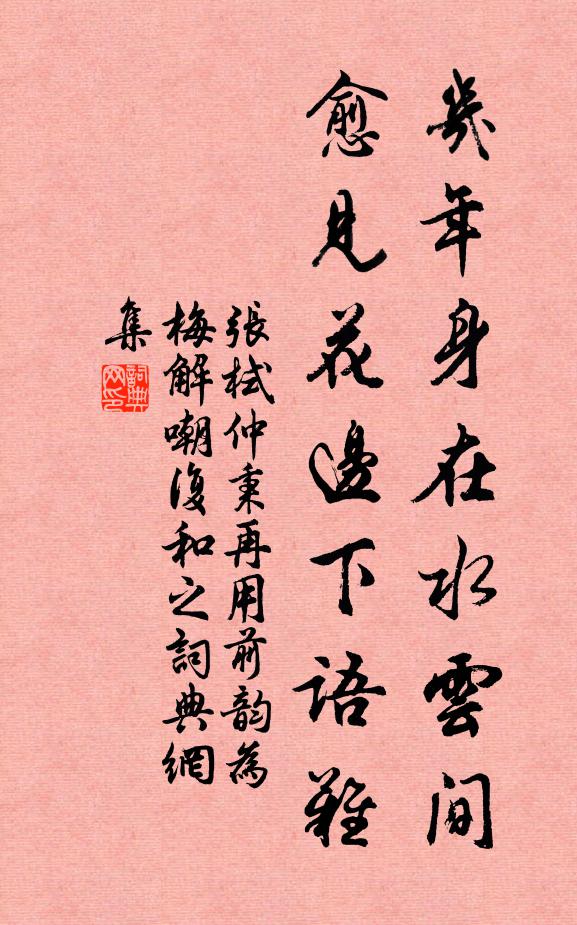 幾年身在水雲間
愈見花邊下語難
張栻仲秉再用前韵為
梅解嘲復和之詞典網
集
詞典
网印